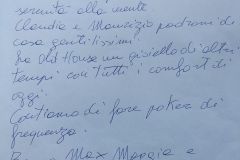 serenità alla mente.
Claudia e Maurizio padroni di
casa gentilissimi
La Old House un gioiello di altri
tempi con tutti i comfort di
oggi.
Contiamo di fare poker di
frequenza.
Max Maggie e